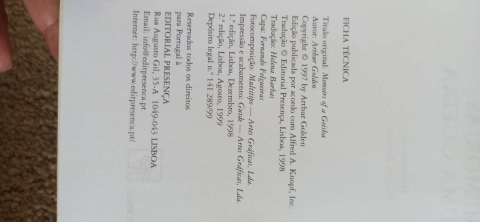 FICHA TÉCNICA
Título original: Memoirs of a Geisha
Autor: Arthur Golden
Copyright © 1997 by Arthur Golden
Edição publicada por acordo com Alfred A. Knopf, Inc.
Tradução © Editorial Presença, Lisboa, 1998
Tradução: Helena Barbas
Capa: Fernando Felgueiras
Fotocomposição: Multitipo — Artes Gráficas, Lda.
Impressão e acabamento: Guide — Artes Gráficas, Lda.
1.ª edição, Lisboa, Dezembro, 1998
2.ª edição, Lisboa, Agosto, 1999
Depósito legal n.º 141 289/99
Reservados todos os direitos
para Portugal à
EDITORIAL PRESENÇA
Rua Augusto Gil, 35-A 1049-043 LISBOA
Email: info@editpresenca.pt
Internet: http://www.editpresenca.pt/